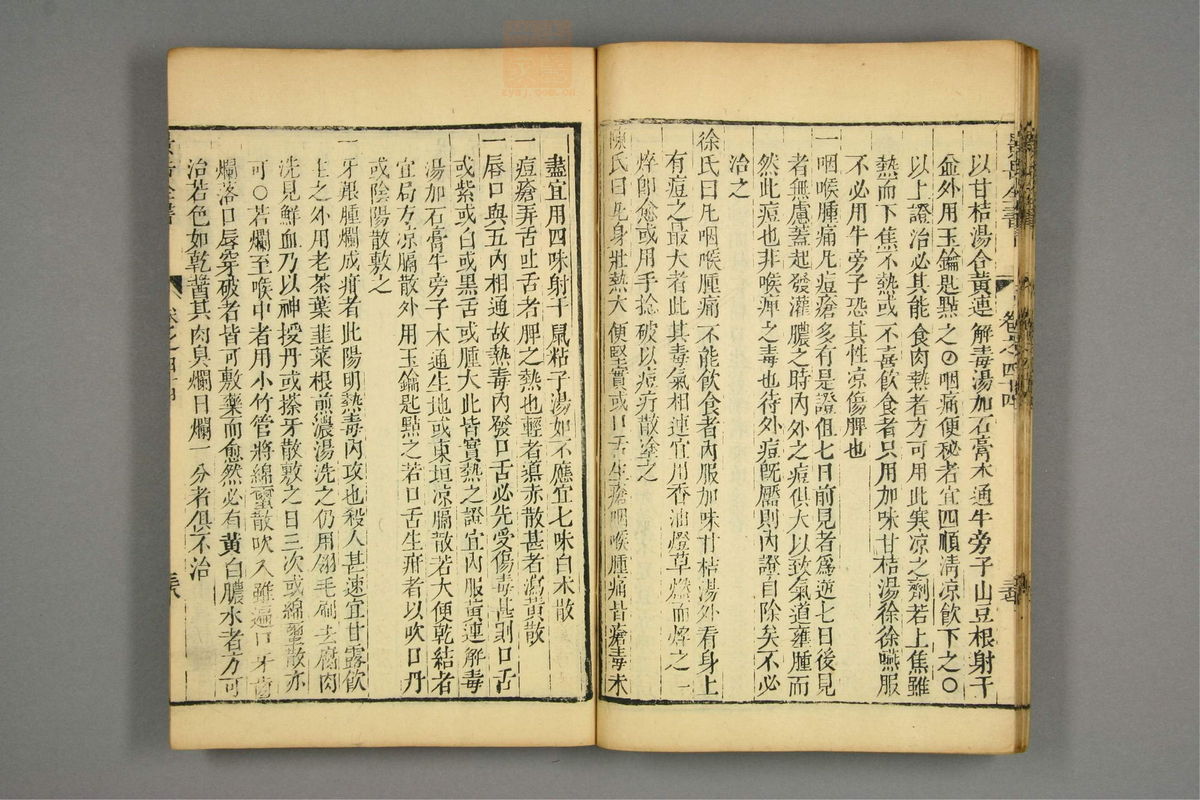 以甘桔湯合黃連解毒湯加石膏木通牛旁子山豆根射干
僉外用玉鑰匙㸃之○咽痛便秘者宜四順清凉飲下之○
以上證治必其能食肉熱者方可用此寒凉之劑若上焦雖
熱而下焦不熱或不喜飲食者只用加味甘桔湯徐徐嚥服
不必用牛旁子恐其性凉傷脾也
一咽喉腫痛凡痘瘡多有是證但七日前見者爲逆七日後見
者無慮蓋起發灌膿之時內外之痘俱大以致氣道壅腫而
然此痘也非喉痺之毒也待外痘旣靨則內證自除矣不必
治之
徐氏曰凡咽喉腫痛不能飲食者內服加味甘桔湯外看身上
有痘之最大者此其毒氣相連宜用香油燈草燃而焠之一
焠卽愈或用手捻破以痘疔散塗之
陳氏曰凡身壯熱大便堅實或口舌生瘡咽喉腫痛皆瘡毒未
卷之四十四
盡宜用四味射干鼠粘子湯如不應宜七味白朮散
一痘瘡弄舌吐舌者脾之熱也輕者導赤散甚者瀉黃散
一唇口與五內相通故熱毒內發口舌必先受傷毒甚則口舌
或紫或白或黑舌或腫大此皆實熱之證宜內服黃連解毒
湯加石膏牛旁子木通生地或東垣凉膈散若大便乾結者
宜局方凉膈散外用玉鑰匙㸃之若口舌生疳者以吹口丹
或陰陽散敷之
一牙齦腫爛成疳者此陽明熱毒內攻也殺人甚速宜甘露飲
主之外用老茶葉韭菜根煎濃湯洗之仍用翎毛刷去腐肉
洗見鮮血乃以神授丹或搽牙散敷之日三次或綿繭散亦
可○若爛至喉中者用小竹管將綿繭散吹入雖遍口牙齒
爛落口唇穿破者皆可敷藥而愈然必有黃白膿水者方可
治若色如乾醬其肉臭爛日爛一分者俱不治